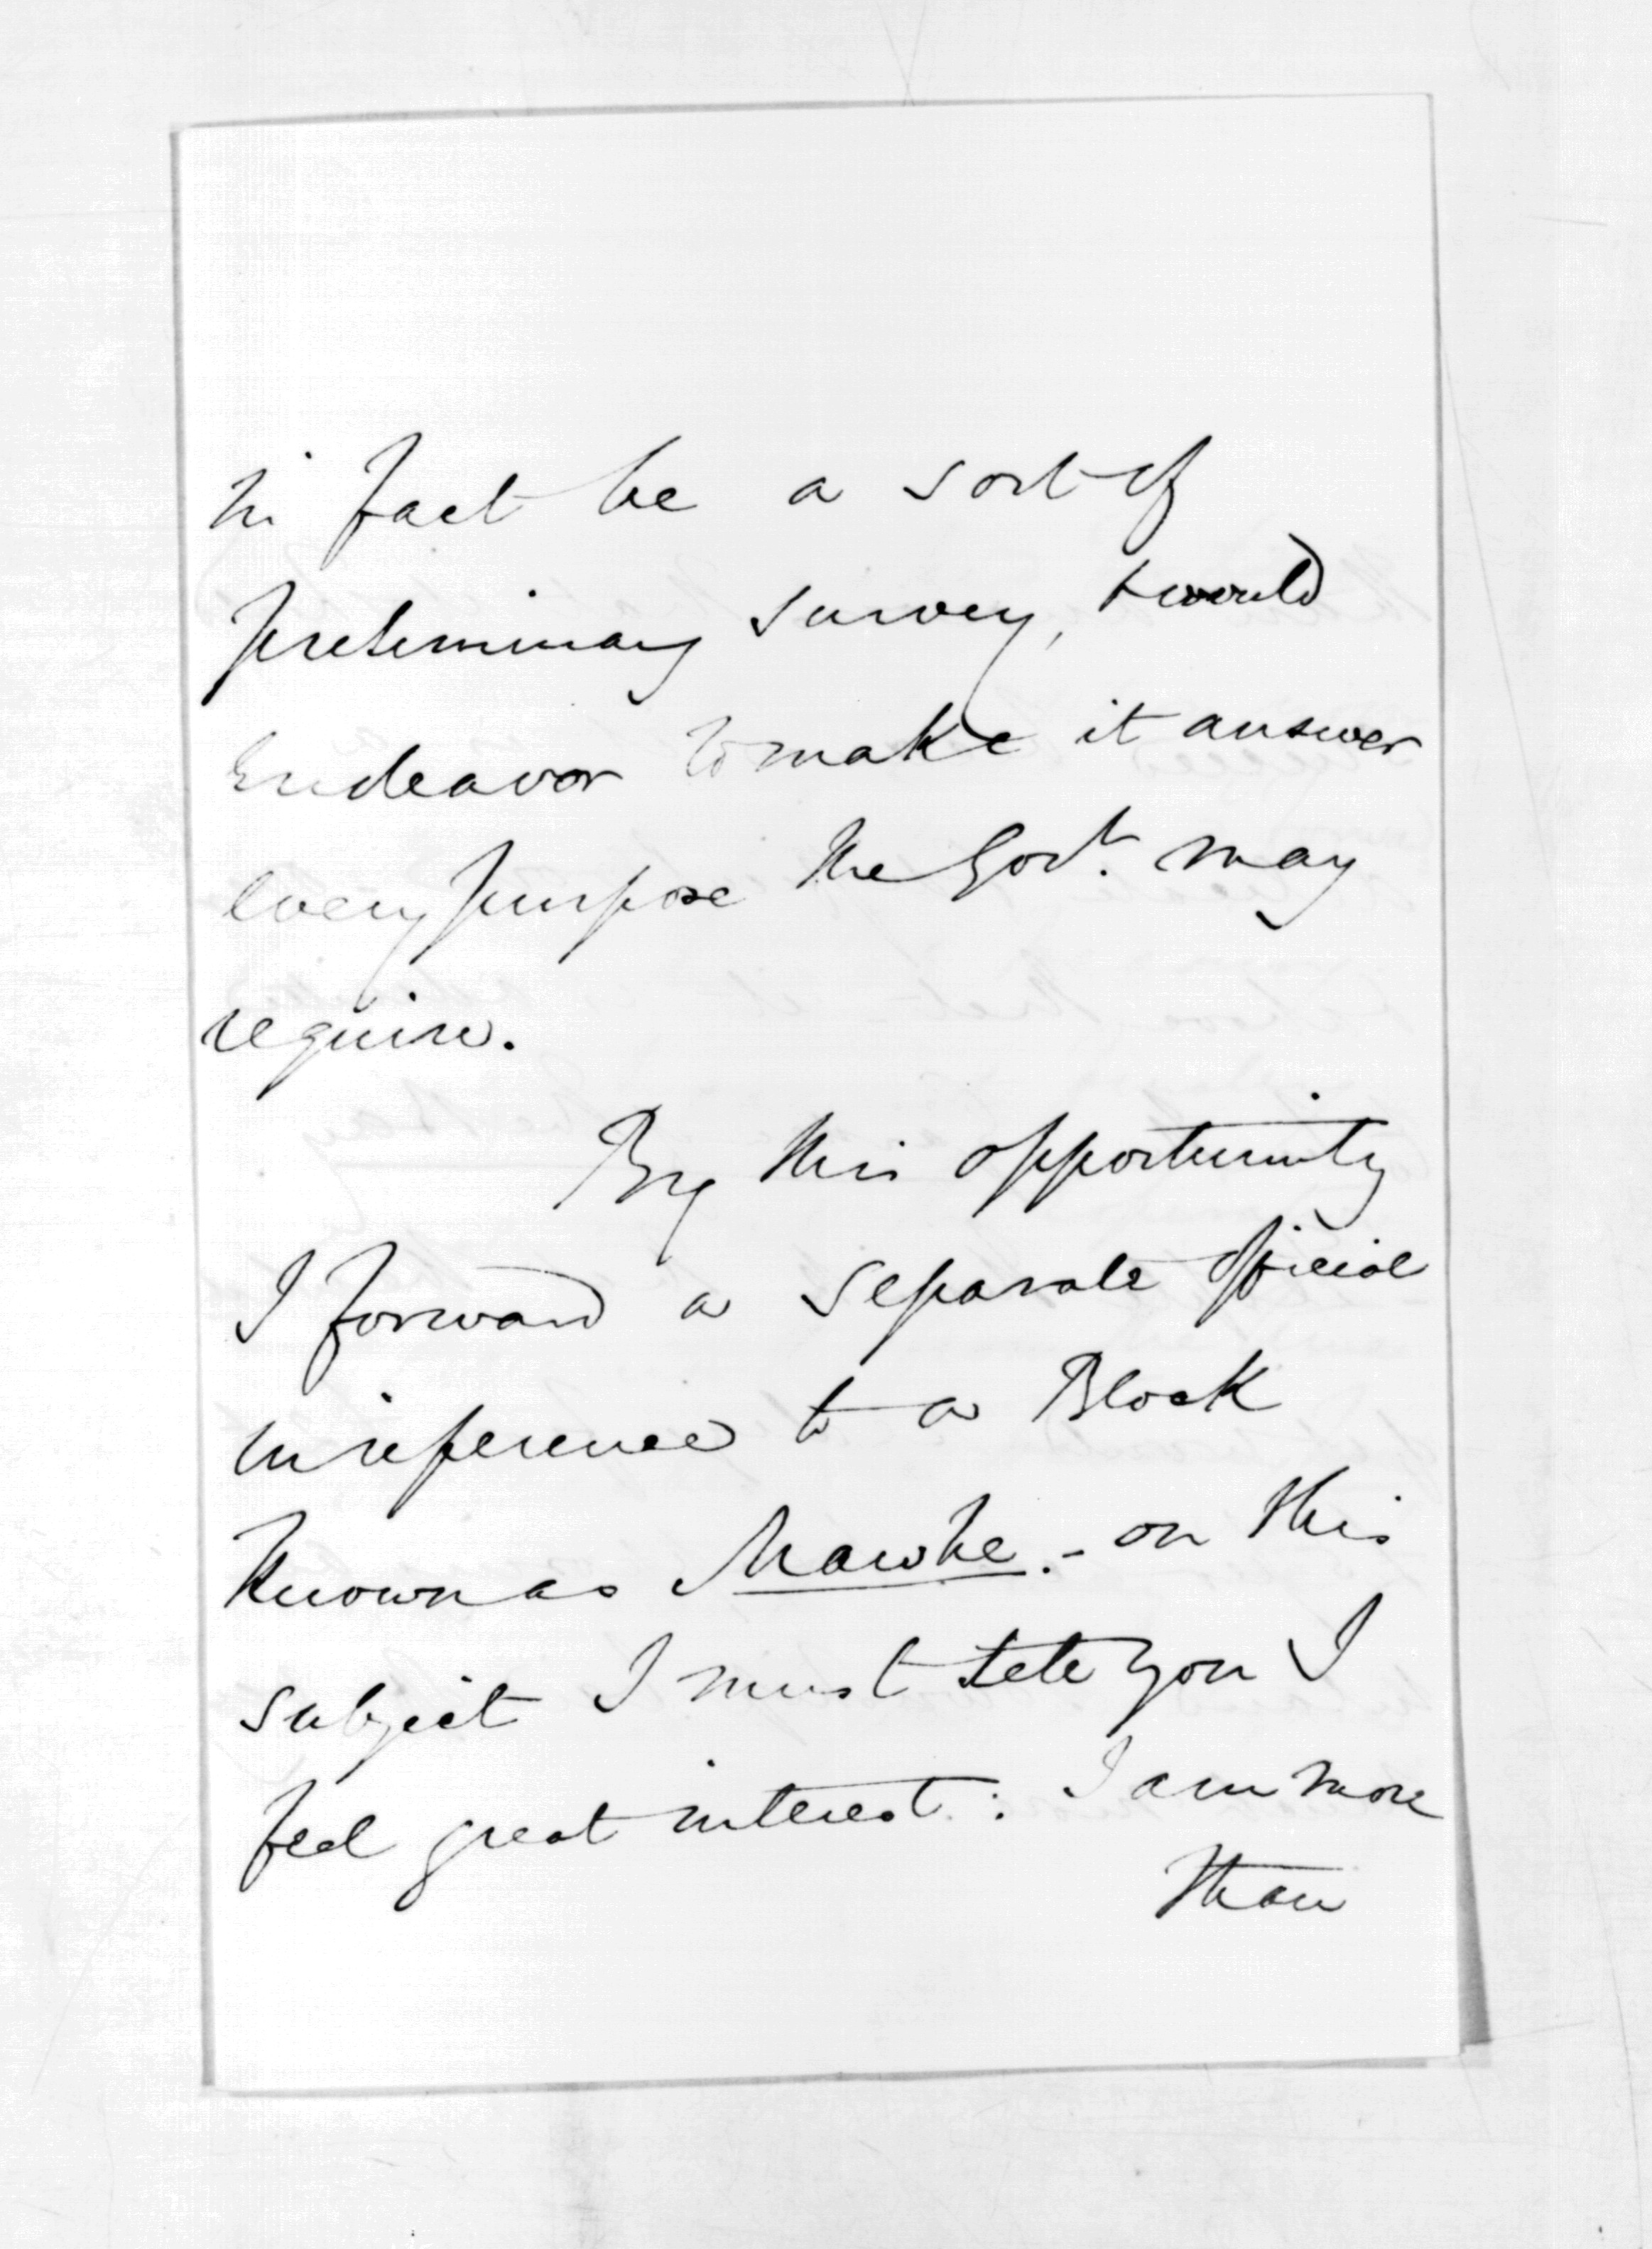 in fact be a sort of
preliminary survey, & would
Endeavor to make it answer
every purpose the Govt. may
require.
By this opportunity
I forward a separate official
in reference to a Block
Known as - on this
subject I must tell you I
feel great interest: I am more
than